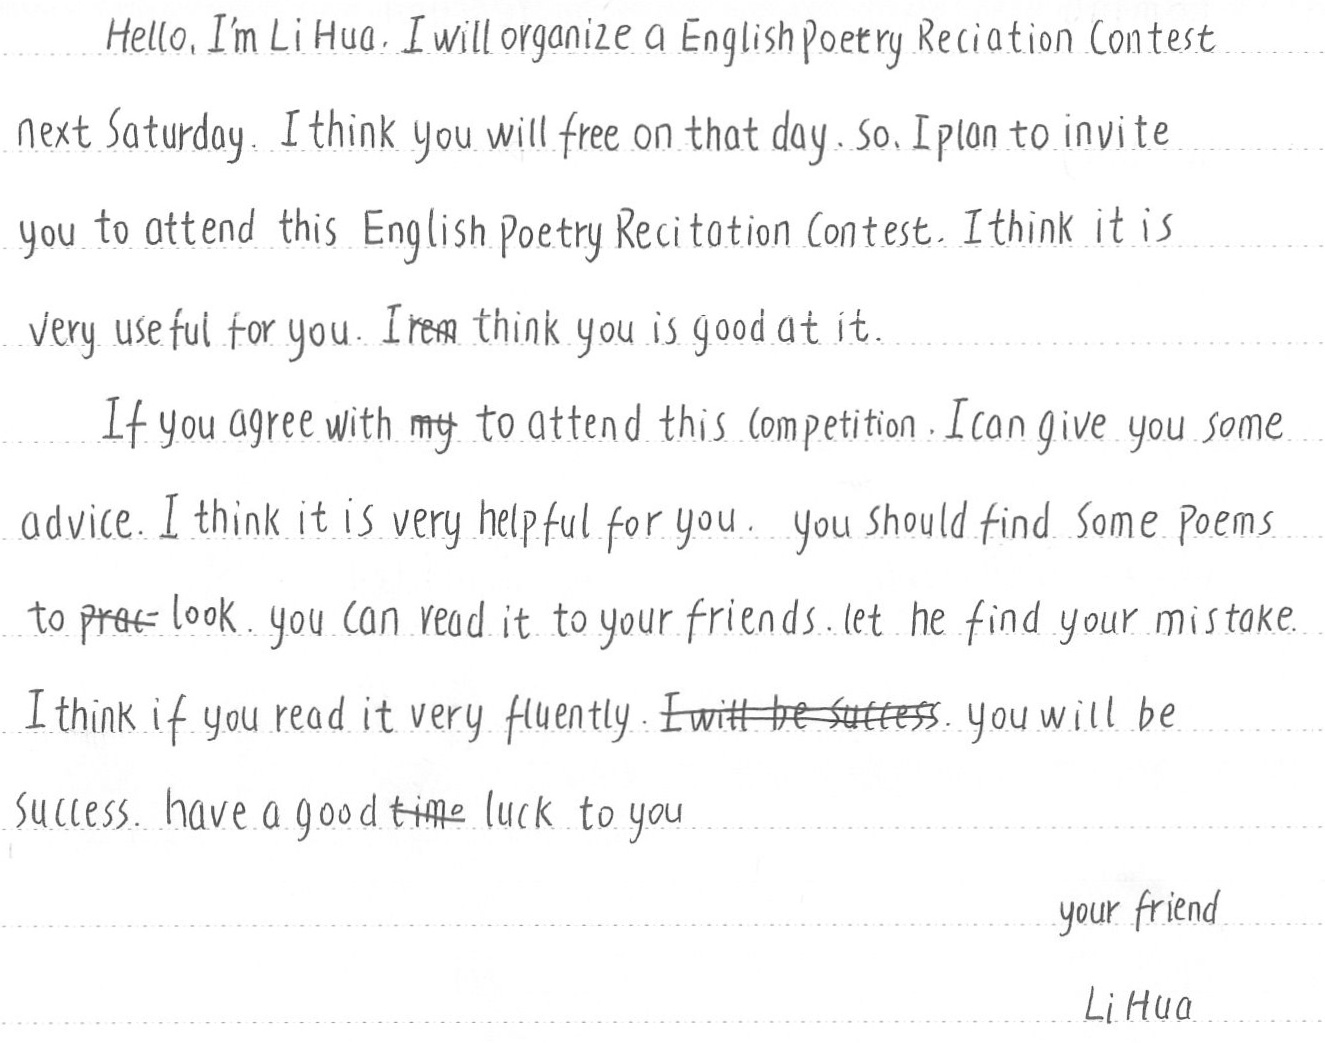 Hello, I'm Li Hua. I will organize a English Poetry Reciation Contest
next Saturday. I think you will free on that day. So, I plan to invite
you to attend this English Poetry Recitation Contest. I think it is
very useful for you. I rem think you is good at it.
If you agree with my to attend this Competition. I can give you some
advice. I think it is very helpful for you. you should find some poems
to prac- look. you can read it to your friends. let he find your mistake.
I think if you read it very fluently. I will be success. you will be
success. have a good time luck to you
your friend
Li Hua